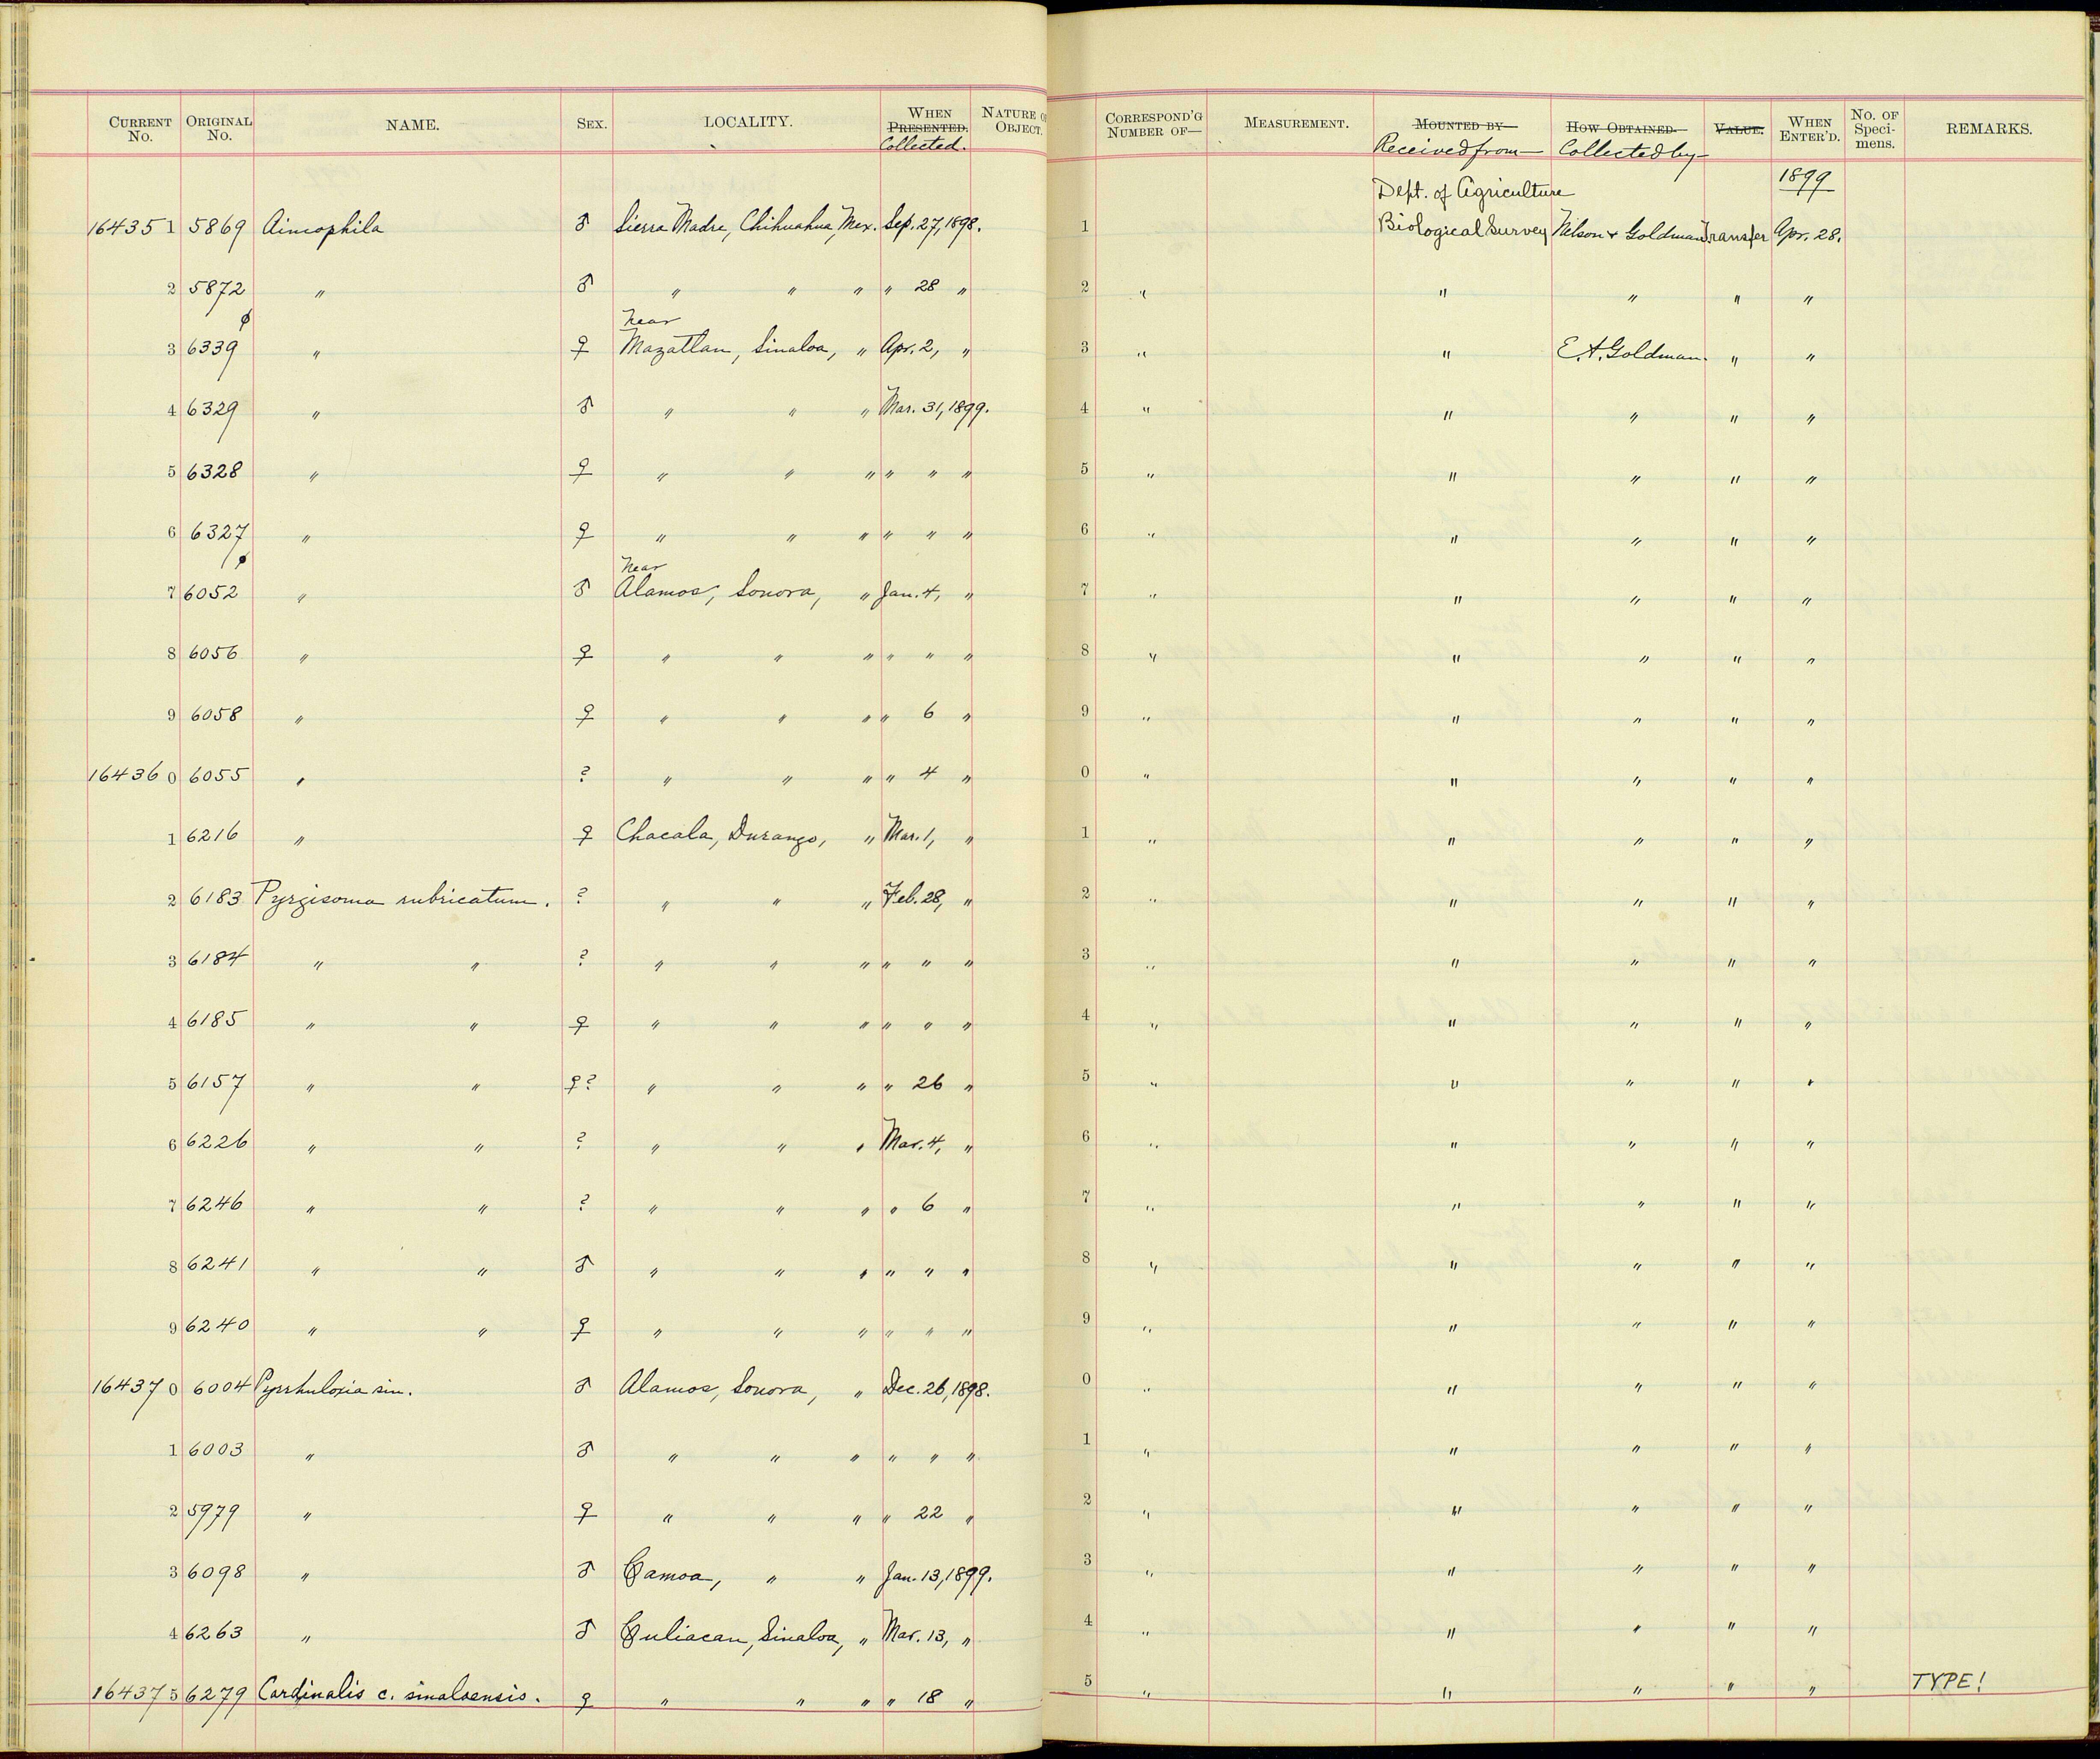 CURRENT No. ORIGINAL No. NAME. SEX. LOCALITY. WHEN PRESENTED. Collected. NATURE OF OBJECT. CORRESPOND'G NUMBER OF— MEASUREMENT. MOUNTED BY— Received from— HOW OBTAINED. Collected by— VALUE. WHEN ENTER'D. No. OF Speci-mens. REMARKS.
Dept. of Agriculture 1899
164351 5869 Aimophila ♂ Sierra Madre, Chihuahua, Mex. Sep. 27, 1898. 1 Biological Survey Nelson & Goldman Transfer Apr. 28.
2 5872 " ♂ " " " " 28 " 2 " " " " "
near
3 6339 " ♀ Mazatlan, Sinaloa, " Apr. 2, " 3 " " E. A. Goldman. " "
4 6329 " ♂ " " " Mar. 31, 1899. 4 " " " " "
5 6328 " ♀ " " " " " " 5 " " " " "
6 6327 " ♀ " " " " " " 6 " " " " "
near
7 6052 " ♂ Alamos, Sonora, " Jan. 4, " 7 " " " " "
8 6056 " ♀ " " " " " " 8 " " " " "
9 6058 " ♀ " " " " 6 " 9 " " " " "
164360 6055 " ? " " " " 4 " 0 " " " " "
1 6216 " ♀ Chacala, Durango, " Mar. 1, " 1 " " " " "
2 6183 Pyrgisoma rubricatum. ? " " " Feb. 28, " 2 " " " " "
3 6184 " " ? " " " " " " 3 " " " " "
4 6185 " " ♀ " " " " " " 4 " " " " "
5 6157 " " ♀? " " " " 26 " 5 " " " " "
6 6226 " " ? " " " Mar. 4, " 6 " " " " "
7 6246 " " ? " " " " 6 " 7 " " " " "
8 6241 " " ♂ " " " " " " 8 " " " " "
9 6240 " " ♀ " " " " " " 9 " " " " "
164370 6004 Pyrrhuloxia sin. ♂ Alamos, Sonora, " Dec. 26, 1898. 0 " " " " "
1 6003 " ♂ " " " " " " 1 " " " " "
2 5979 " ♀ " " " " 22 " 2 " " " " "
3 6098 " ♂ Camoa, " " Jan. 13, 1899. 3 " " " " "
4 6263 " ♂ Culiacan, Sinaloa, " Mar. 13, " 4 " " " " "
164375 6279 Cardinalis c. sinaloensis. ♀ " " " " 18 " 5 " " " " " TYPE!